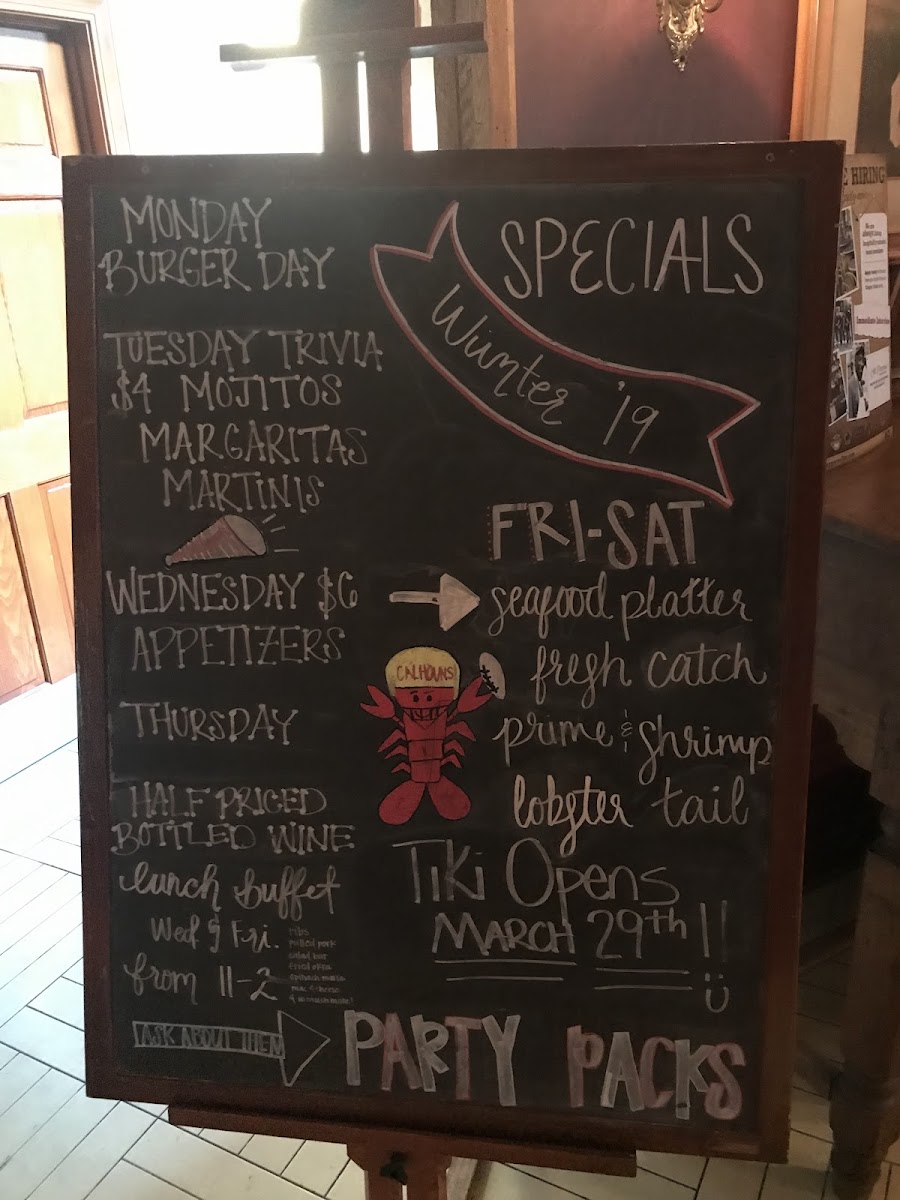 MONDAY
BURGER DAY
TUESDAY TRIVIA
$4 MOJITOS
MARGARITAS
MARTINIS
WEDNESDAY $6
APPETIZERS
THURSDAY
HALF PRICED
BOTTLED WINE
lunch buffet
Wed & Fri.
from 11-2
ribs
pulled pork
salad bar
fried okra
spinach maria
mac & cheese
& so much more!
SPECIALS
Winter '19
FRI-SAT
seafood platter
fresh catch
prime & shrimp
lobster tail
CALHOUNS
Tiki Opens
MARCH 29th!!
ASK ABOUT THEM
PARTY PACKS
E HIRING
Immediate